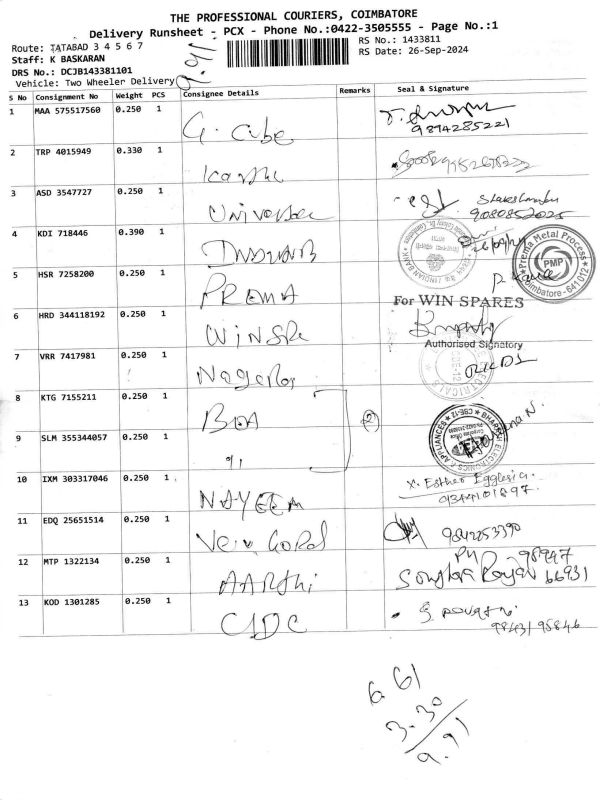 THE PROFESSIONAL COURIERS, COIMBATORE
Delivery Runsheet - PCX - Phone No.:0422-3505555 - Page No.:1
Route: TATABAD 3 4 5 6 7
RS No.: 1433811
Staff: K BASKARAN
RS Date: 26-Sep-2024
DRS No.: DCJB143381101
Vehicle: Two Wheeler Delivery
9.91
S No Consignment No Weight PCS Consignee Details Remarks Seal & Signature
1 MAA 575517560 0.250 1 G. Cube
9894285221
2 TRP 4015949 0.330 1
3 ASD 3547727 0.250 1 Universe
9080852025
4 KDI 718446 0.390 1
INDIAN BANK
5 HSR 7258200 0.250 1 PREMA
Prema Metal Process
PMP
Coimbatore - 641 012
For WIN SPARES
6 HRD 344118192 0.250 1
Authorised Signatory
7 VRR 7417981 0.250 1
ELECTRICALS
8 KTG 7155211 0.250 1 (2)
BHARATH ELECTRONICS & APPLIANCES
CBE-12
9 SLM 355344057 0.250 1 "
10 IXM 303317046 0.250 1 NAYEEM
11 EDQ 25651514 0.250 1 Venu Gopal 9842253390
12 MTP 1322134 0.250 1 AARTHI
PH 98947
66931
13 KOD 1301285 0.250 1 CIDC
98431 95846
6.61
3.30
9.91